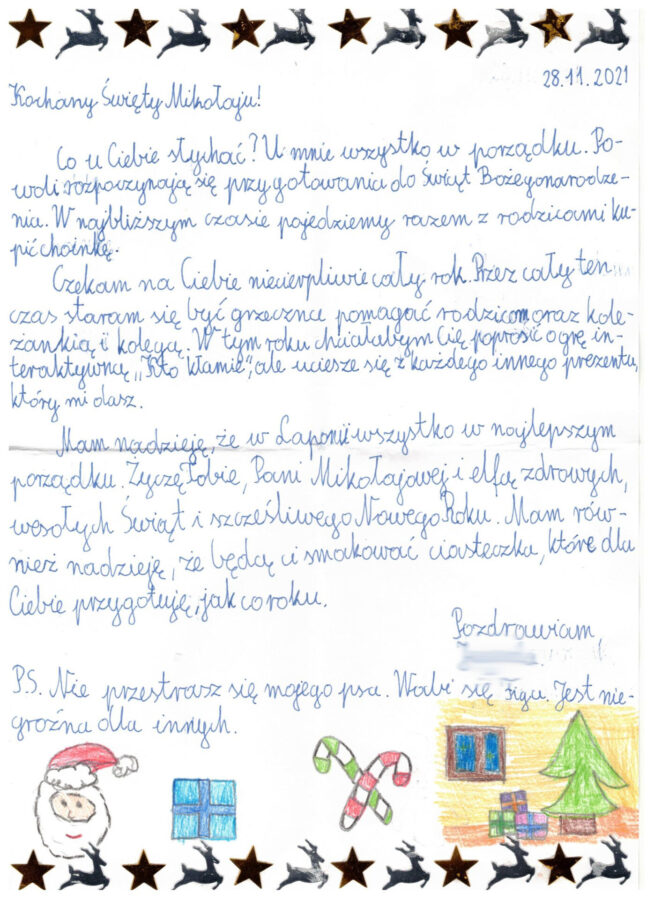 28.11.2021
Kochany Święty Mikołaju!
Co u Ciebie słychać? U mnie wszystko w porządku. Po-
woli rozpoczynają się przygotowania do Świąt Bożegonarodze-
nia. W najbliższym czasie pojedziemy razem z rodzicami ku-
pić choinkę.
Czekam na Ciebie niecierpliwie cały rok. Przez cały ten
czas staram się być grzeczna pomagać rodzicom oraz kole-
żanką i kolegą. W tym roku chciałabym Cię poprosić o grę in-
teraktywną „Kto kłamie”, ale uciesze się z każdego innego prezentu,
który mi dasz.
Mam nadzieję, że w Laponii wszystko w najlepszym
porządku. Życzę Tobie, Pani Mikołajowej i elfą zdrowych,
wesołych Świąt i szczęśliwego Nowego Roku. Mam rów-
nież nadzieję, że będą ci smakować ciasteczka, które dla
Ciebie przygotuję, jak co roku.
Pozdrawiam,
P.S. Nie przestrasz się mojego psa. Wabi się Figa. Jest nie-
groźna dla innych.